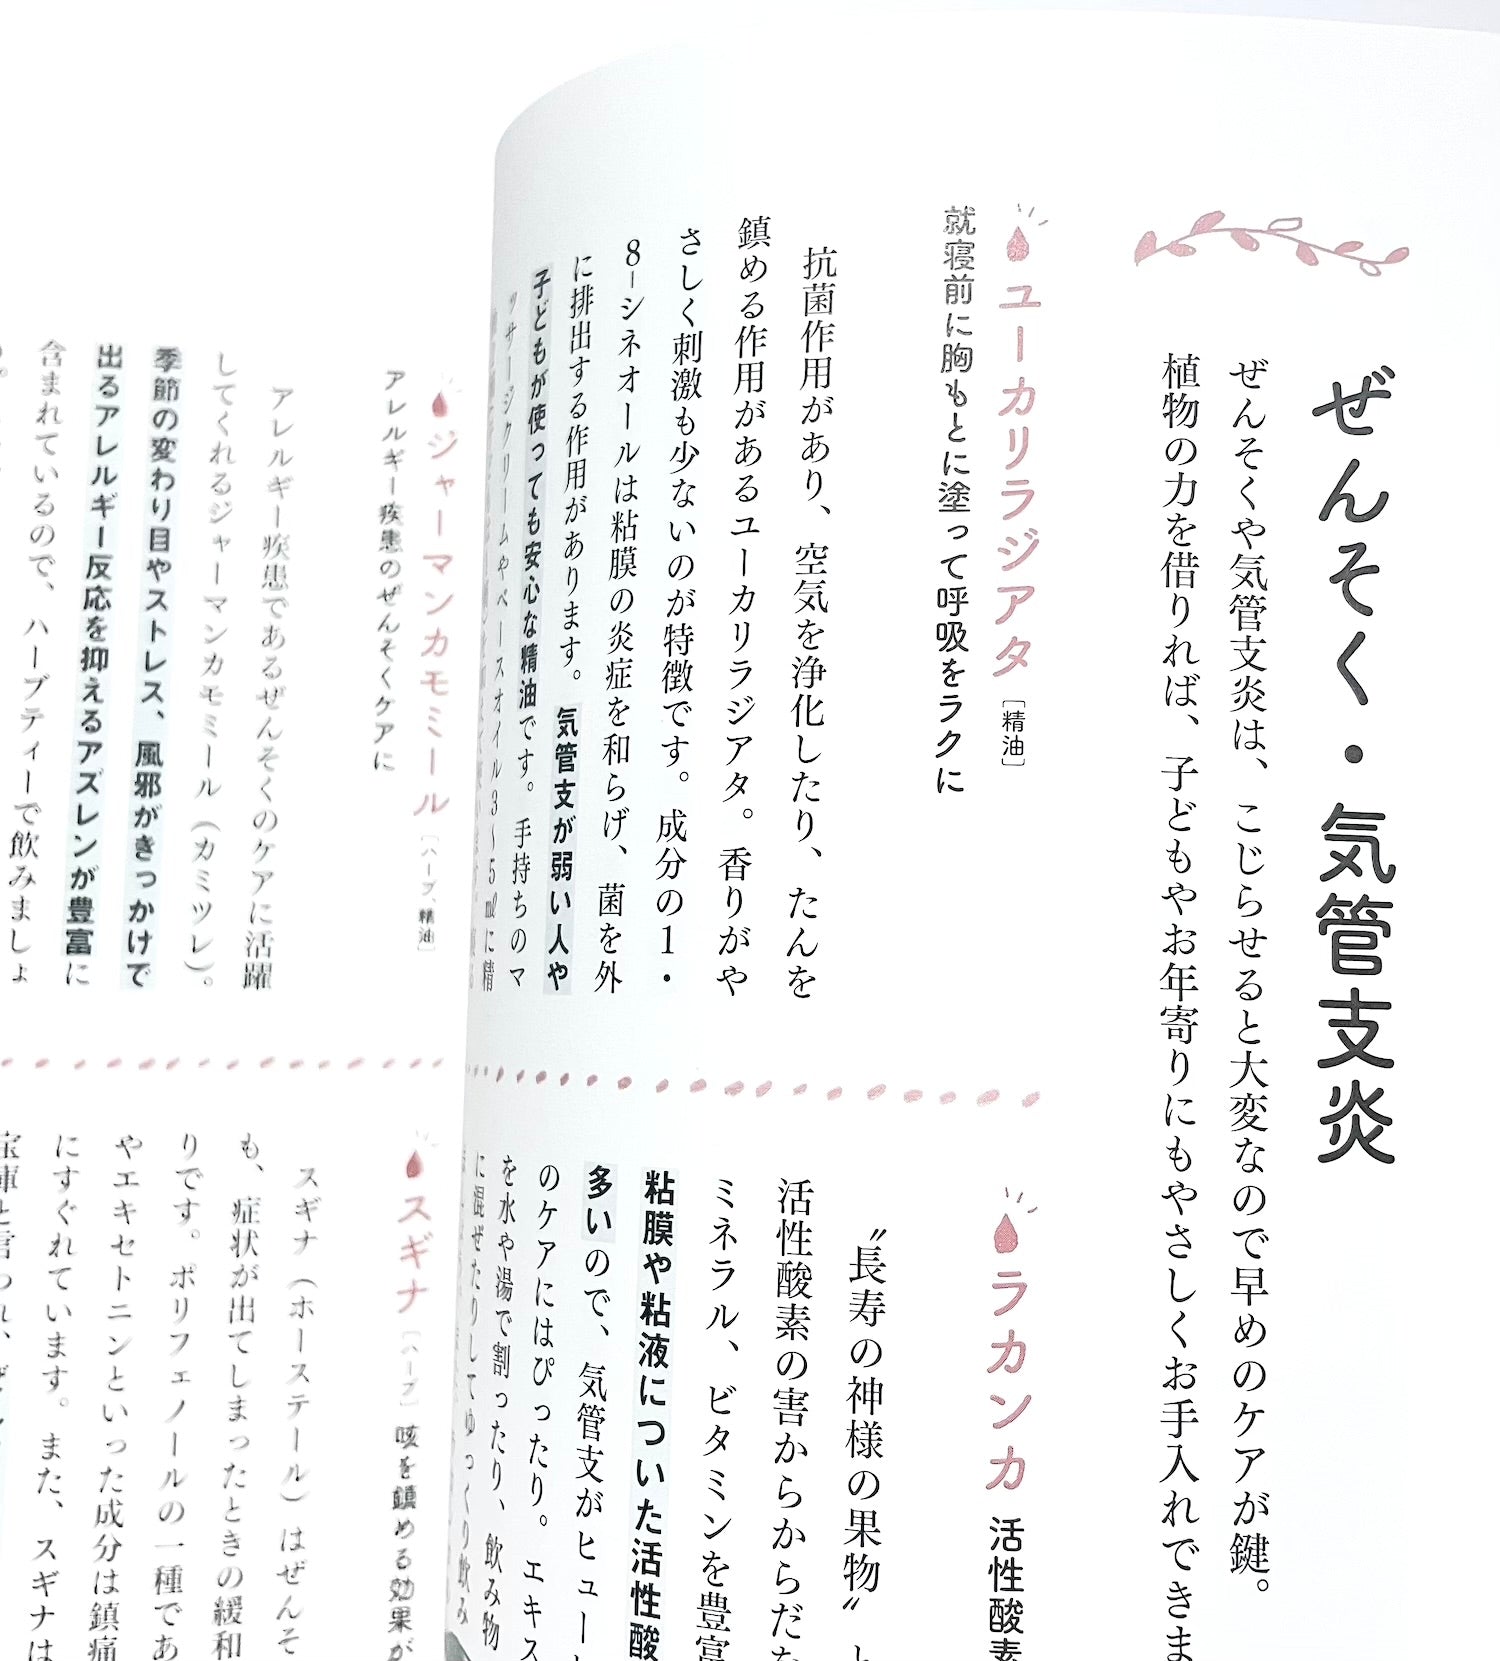 ぜんそく・気管支炎
ぜんそくや気管支炎は、こじらせると大変なので早めのケアが鍵。
植物の力を借りれば、子どもやお年寄りにもやさしくお手入れできま
ユーカリラジアタ［精油］
就寝前に胸もとに塗って呼吸をラクに
抗菌作用があり、空気を浄化したり、たんを
鎮める作用があるユーカリラジアタ。香りがや
さしく刺激も少ないのが特徴です。成分の1・
8−シネオールは粘膜の炎症を和らげ、菌を外
に排出する作用があります。気管支が弱い人や
子どもが使っても安心な精油です。手持ちのマ
ッサージクリームやベースオイル3〜5mlに精
ラカンカ 活性酸素
〝長寿の神様の果物〟と
活性酸素の害からからだな
ミネラル、ビタミンを豊富
粘膜や粘液についた活性酸
多いので、気管支がヒュー
のケアにはぴったり。エキス
を水や湯で割ったり、飲み物
に混ぜたりしてゆっくり飲み
ジャーマンカモミール［ハーブ、精油］
アレルギー疾患のぜんそくケアに
アレルギー疾患であるぜんそくのケアに活躍
してくれるジャーマンカモミール（カミツレ）。
季節の変わり目やストレス、風邪がきっかけで
出るアレルギー反応を抑えるアズレンが豊富に
含まれているので、ハーブティーで飲みましょ
スギナ［ハーブ］咳を鎮める効果が
スギナ（ホーステール）はぜんそ
も、症状が出てしまったときの緩和
りです。ポリフェノールの一種であ
やエキセトニンといった成分は鎮痛
にすぐれています。また、スギナは
宝庫と言われ、